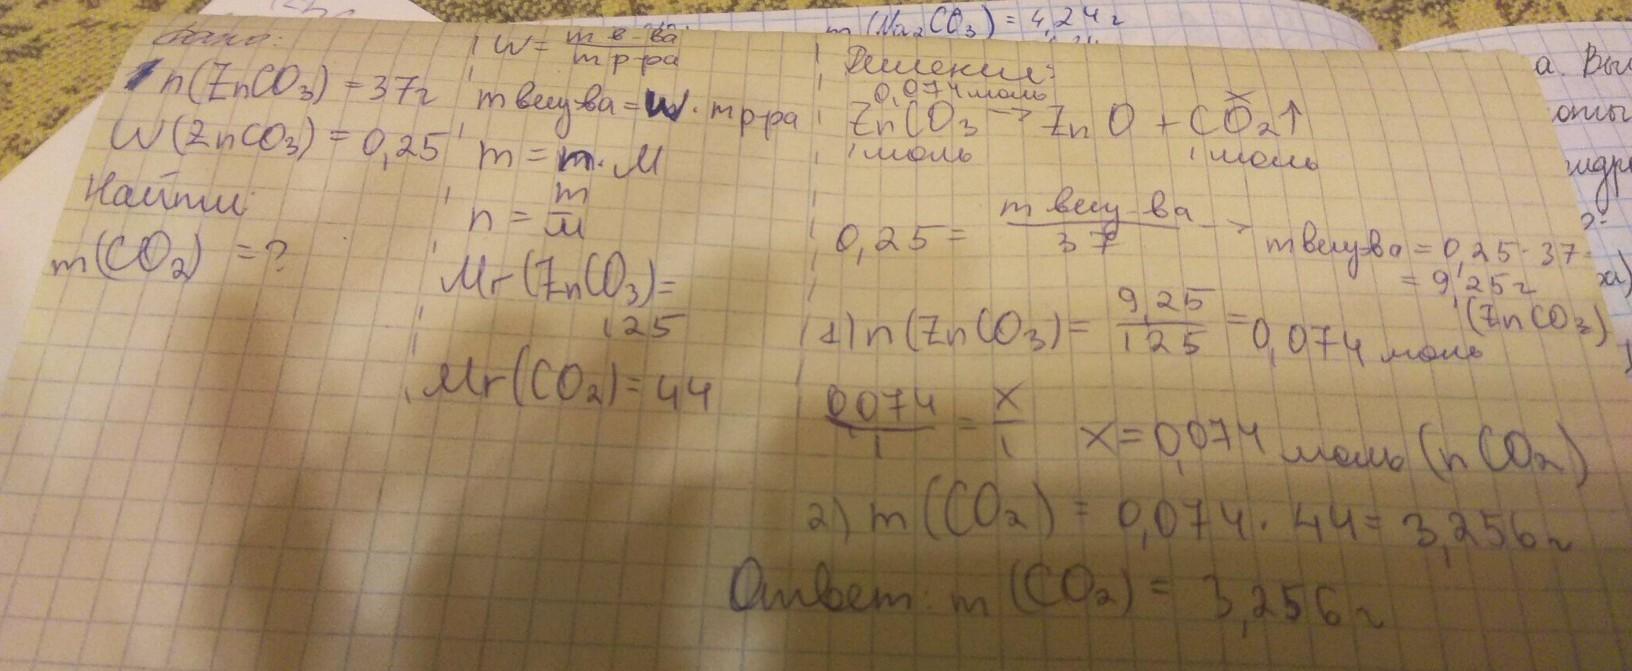 m(Na₂CO₃) = 4,24г
Дано:
n(ZnCO₃) = 37г
W(ZnCO₃) = 0,25
Найти:
m(CO₂) = ?
W = m в-ва / m р-ра
m вещ-ва = W · m р-ра
m = n · M
n = m / M
Mr(ZnCO₃) =
125
Mr(CO₂) = 44
Решение:
0,074 моль x
ZnCO₃ → ZnO + CO₂↑
1 моль 1 моль
0,25 = m вещ-ва / 37 → m вещ-ва = 0,25 · 37 =
= 9,25г
(ZnCO₃)
1) n(ZnCO₃) = 9,25 / 125 = 0,074 моль
0,074 / 1 = x / 1 x = 0,074 моль (nCO₂)
2) m(CO₂) = 0,074 · 44 = 3,256г
Ответ: m(CO₂) = 3,256г